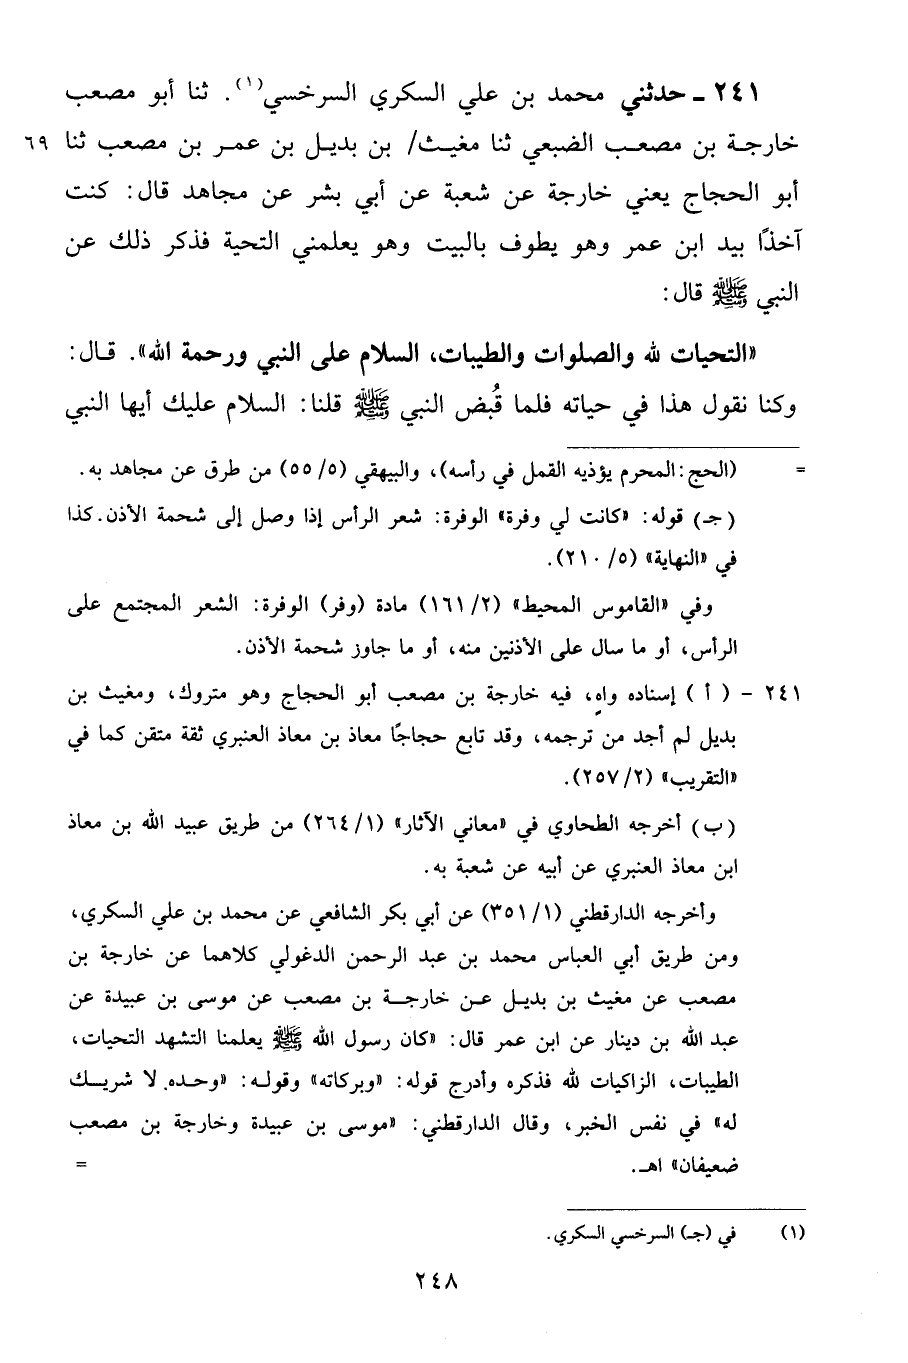 ٢٤١ - حدثني محمد بن علي السكري السرخسي(١). ثنا أبو مصعب
خارجة بن مصعب الضبعي ثنا مغيث/ بن بديل بن عمر بن مصعب ثنا ٦٩
أبو الحجاج يعني خارجة عن شعبة عن أبي بشر عن مجاهد قال: كنت
آخذًا بيد ابن عمر وهو يطوف بالبيت وهو يعلمني التحية فذكر ذلك عن
النبي ﷺ قال:
«التحيات لله والصلوات والطيبات، السلام على النبي ورحمة الله». قال:
وكنا نقول هذا في حياته فلما قُبض النبي ﷺ قلنا: السلام عليك أيها النبي
= (الحج: المحرم يؤذيه القمل في رأسه)، والبيهقي (٥/ ٥٥) من طرق عن مجاهد به.
(جـ) قوله: «كانت لي وفرة» الوفرة: شعر الرأس إذا وصل إلى شحمة الأذن. كذا
في «النهاية» (٥/ ٢١٠).
وفي «القاموس المحيط» (٢/ ١٦١) مادة (وفر) الوفرة: الشعر المجتمع على
الرأس، أو ما سال على الأذنين منه، أو ما جاوز شحمة الأذن.
٢٤١ - (أ) إسناده واهٍ، فيه خارجة بن مصعب أبو الحجاج وهو متروك، ومغيث بن
بديل لم أجد من ترجمه، وقد تابع حجاجًا معاذ بن معاذ العنبري ثقة متقن كما في
«التقريب» (٢/ ٢٥٧).
(ب) أخرجه الطحاوي في «معاني الآثار» (١/ ٢٦٤) من طريق عبيد الله بن معاذ
ابن معاذ العنبري عن أبيه عن شعبة به.
وأخرجه الدارقطني (١/ ٣٥١) عن أبي بكر الشافعي عن محمد بن علي السكري،
ومن طريق أبي العباس محمد بن عبد الرحمن الدغولي كلاهما عن خارجة بن
مصعب عن مغيث بن بديل عن خارجة بن مصعب عن موسى بن عبيدة عن
عبد الله بن دينار عن ابن عمر قال: «كان رسول الله ﷺ يعلمنا التشهد التحيات،
الطيبات، الزاكيات لله فذكره وأدرج قوله: «وبركاته» وقوله: «وحده لا شريك
له» في نفس الخبر، وقال الدارقطني: «موسى بن عبيدة وخارجة بن مصعب
ضعيفان» اهـ. =
(١) في (جـ) السرخسي السكري.
٢٤٨